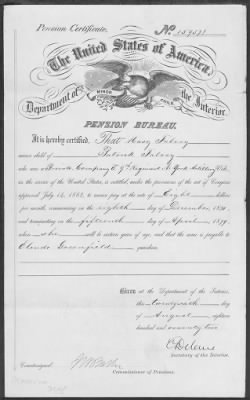 Pension Certificate.
No. 159531
The United States of America.
Department of the Interior.
PENSION BUREAU.
It is hereby certified, That Mary
minor child of Patrick
who was a Private Company E 9th Regiment N York Artillery Vols
in the service of the United States, is entitled, under the provisions of the act of Congress
approved July 14, 1862, to receive pension at the rate of Eight dollars
per month, commencing on the eighth day of December
and terminating on the fifteenth day of April 1879,
when she will be sixteen years of age, and that the same is payable to
Greenfield, guardian
Given at the Department of the Interior,
this twentyninth day
of August eighteen
hundred and seventy two
Secretary of the Interior.
Countersigned,
Commissioner of Pensions.